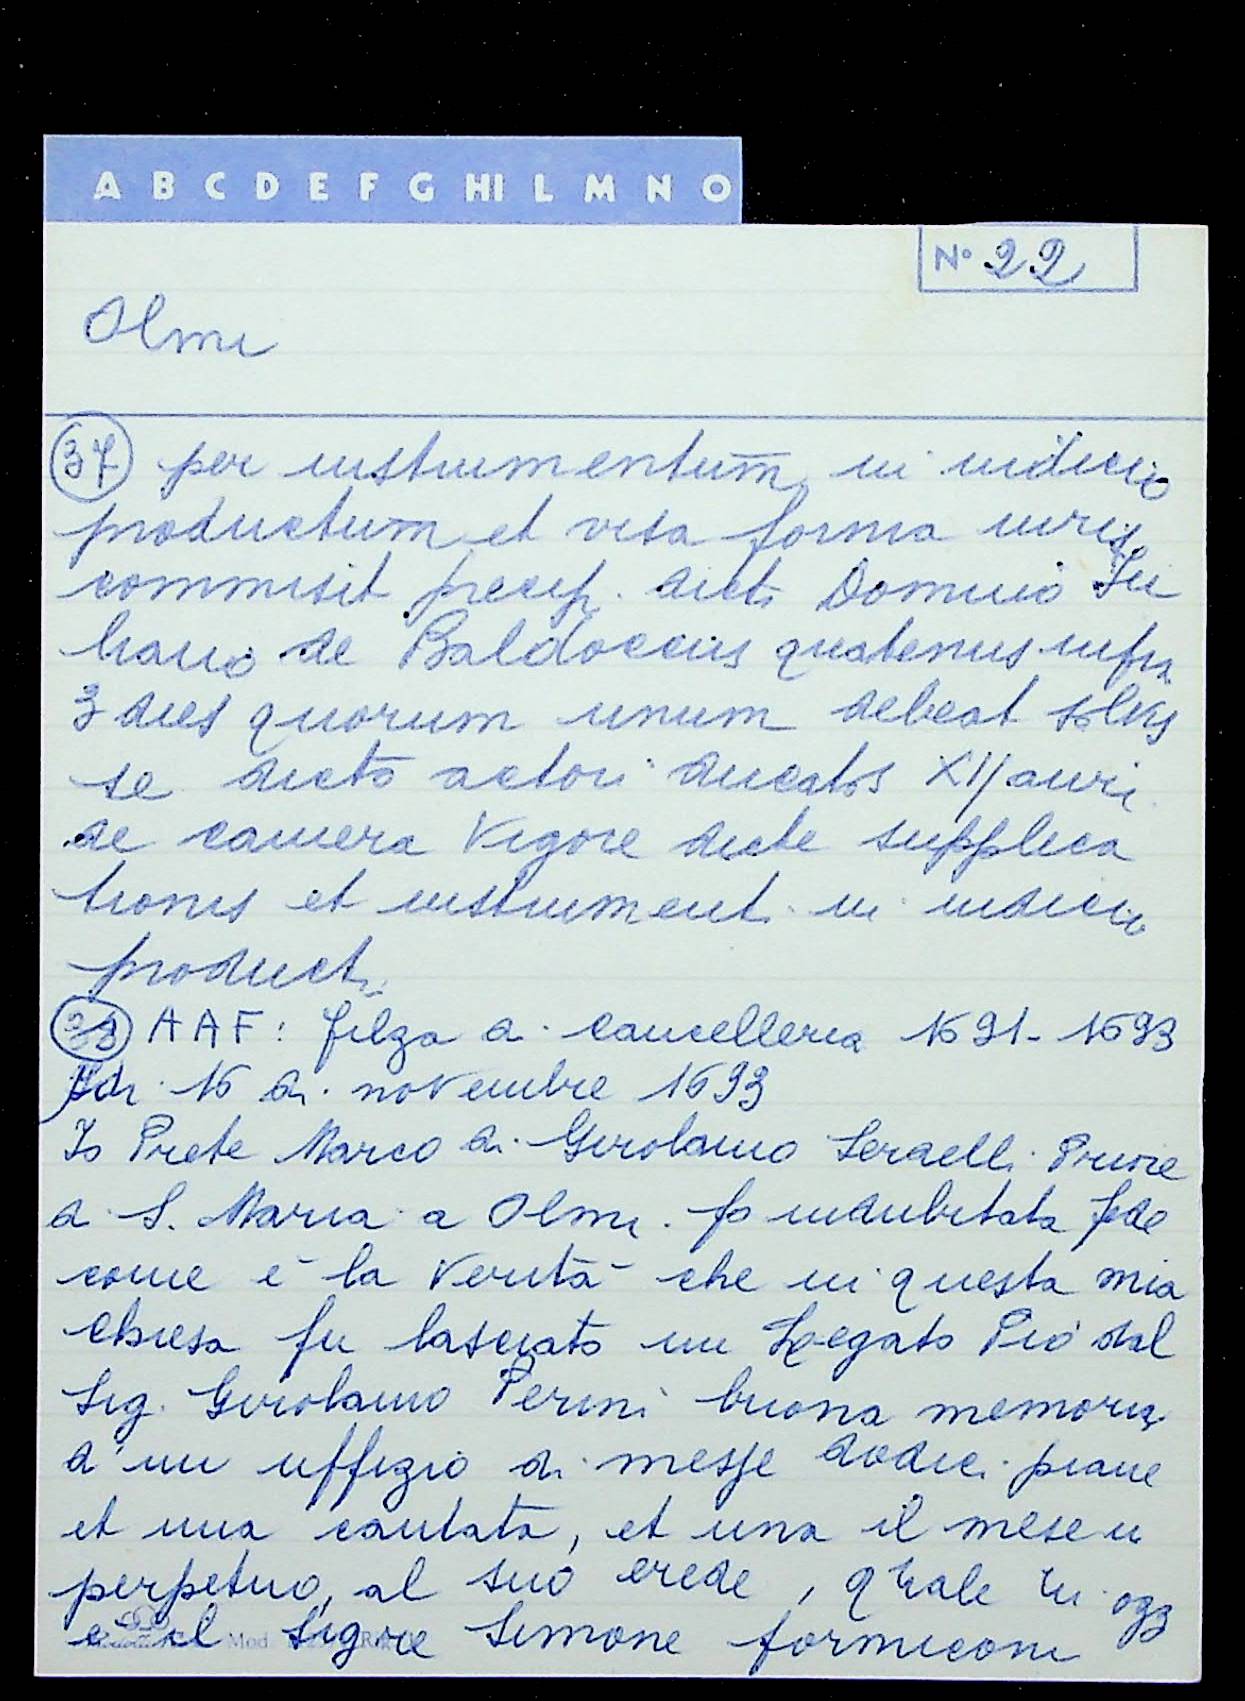 A B C D E F G HI L M N O
N° 22
Olmi
37 per instrumentum in iudicio
productum et visa forma iuris
commisit precip. dicto Domino Iu
liano de Baldoccius quatenus infra
3 dies quorum unum debeat
se dicto actori ducatos XII auri
de camera vigore dicte supplica
tionis et instrumenti in iudicio
producti
38 AAF: filza di cancelleria 1691-1693
Adi 16 di novembre 1693
Io Prete Marco di Girolamo Priore
di S. Maria a Olmi fo indubitata fede
come è la verità che in questa mia
chiesa fu lasciato un Legato Pio dal
Sig. Girolamo Perini buona memoria
d'un uffizio di messe dodici piane
et una cantata, et una il mese in
perpetuo, al suo erede, quale in ogg
è il Sigore Simone formiconi
Mod